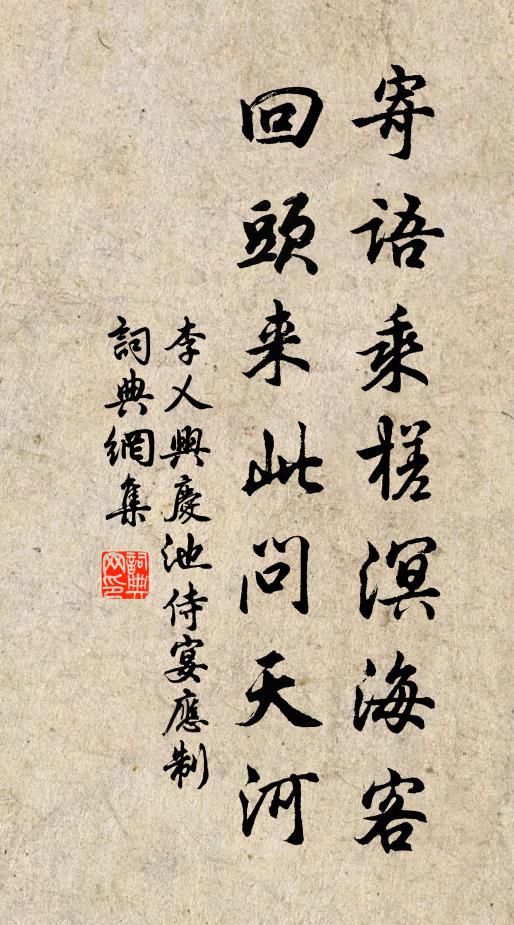 寄語乘槎溟海客
回頭来此問天河
李乂興慶池侍宴應制
詞典網集
詞典网印